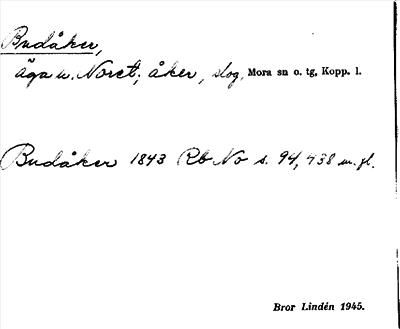 Budåker,
äga u. Noret; åker, slog, Mora sn o. tg, Kopp. l.
Budåker 1843 Rb No s. 94, 438 m. fl.
Bror Lindén 1945.